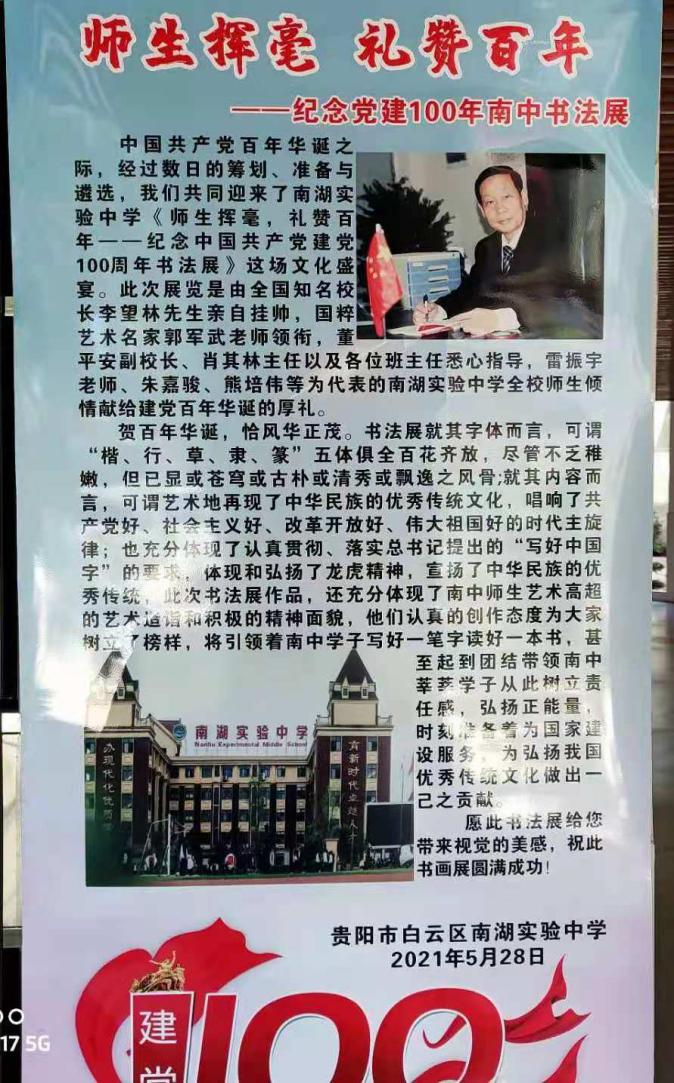 师生挥毫 礼赞百年
——纪念党建100年南中书法展
中国共产党百年华诞之
际，经过数日的筹划、准备与
遴选，我们共同迎来了南湖实
验中学《师生挥毫，礼赞百
年——纪念中国共产党建党
100周年书法展》这场文化盛
宴。此次展览是由全国知名校
长李望林先生亲自挂帅，国粹
艺术名家郭军武老师领衔，董
平安副校长、肖其林主任以及各位班主任悉心指导，雷振宇
老师、朱嘉骏、熊培伟等为代表的南湖实验中学全校师生倾
情献给建党百年华诞的厚礼。
贺百年华诞，恰风华正茂。书法展就其字体而言，可谓
“楷、行、草、隶、篆”五体俱全百花齐放，尽管不乏稚
嫩，但已显或苍穹或古朴或清秀或飘逸之风骨;就其内容而
言，可谓艺术地再现了中华民族的优秀传统文化，唱响了共
产党好、社会主义好、改革开放好、伟大祖国好的时代主旋
律；也充分体现了认真贯彻、落实总书记提出的“写好中国
字”的要求，体现和弘扬了龙虎精神，宣扬了中华民族的优
秀传统，此次书法展作品，还充分体现了南中师生艺术高超
的艺术造诣和积极的精神面貌，他们认真的创作态度为大家
树立了榜样，将引领着南中学子写好一笔字读好一本书，甚
至起到团结带领南中
莘莘学子从此树立责
任感，弘扬正能量，
时刻准备着为国家建
设服务，为弘扬我国
优秀传统文化做出一
己之贡献。
愿此书法展给您
带来视觉的美感，祝此
书画展圆满成功！
南湖实验中学
Nanhu Experimental Middle School
办现代化优质
育新时代
贵阳市白云区南湖实验中学
2021年5月28日
建党
100
17 5G